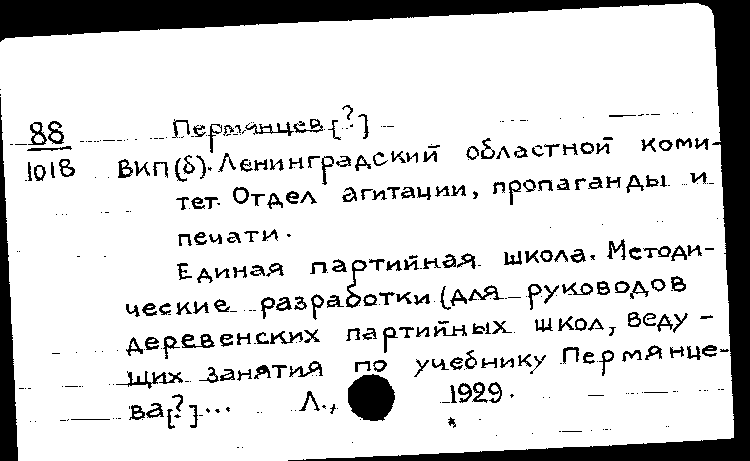 88 Пермянцев [?]
1018 ВКП(б). Ленинградский областной коми-
тет. Отдел агитации, пропаганды и
печати.
Единая партийная школа. Методи-
ческие разработки (для руководов
деревенских партийных школ, веду-
щих занятия по учебнику Пермянце-
ва[?]... Л., 1929.
*